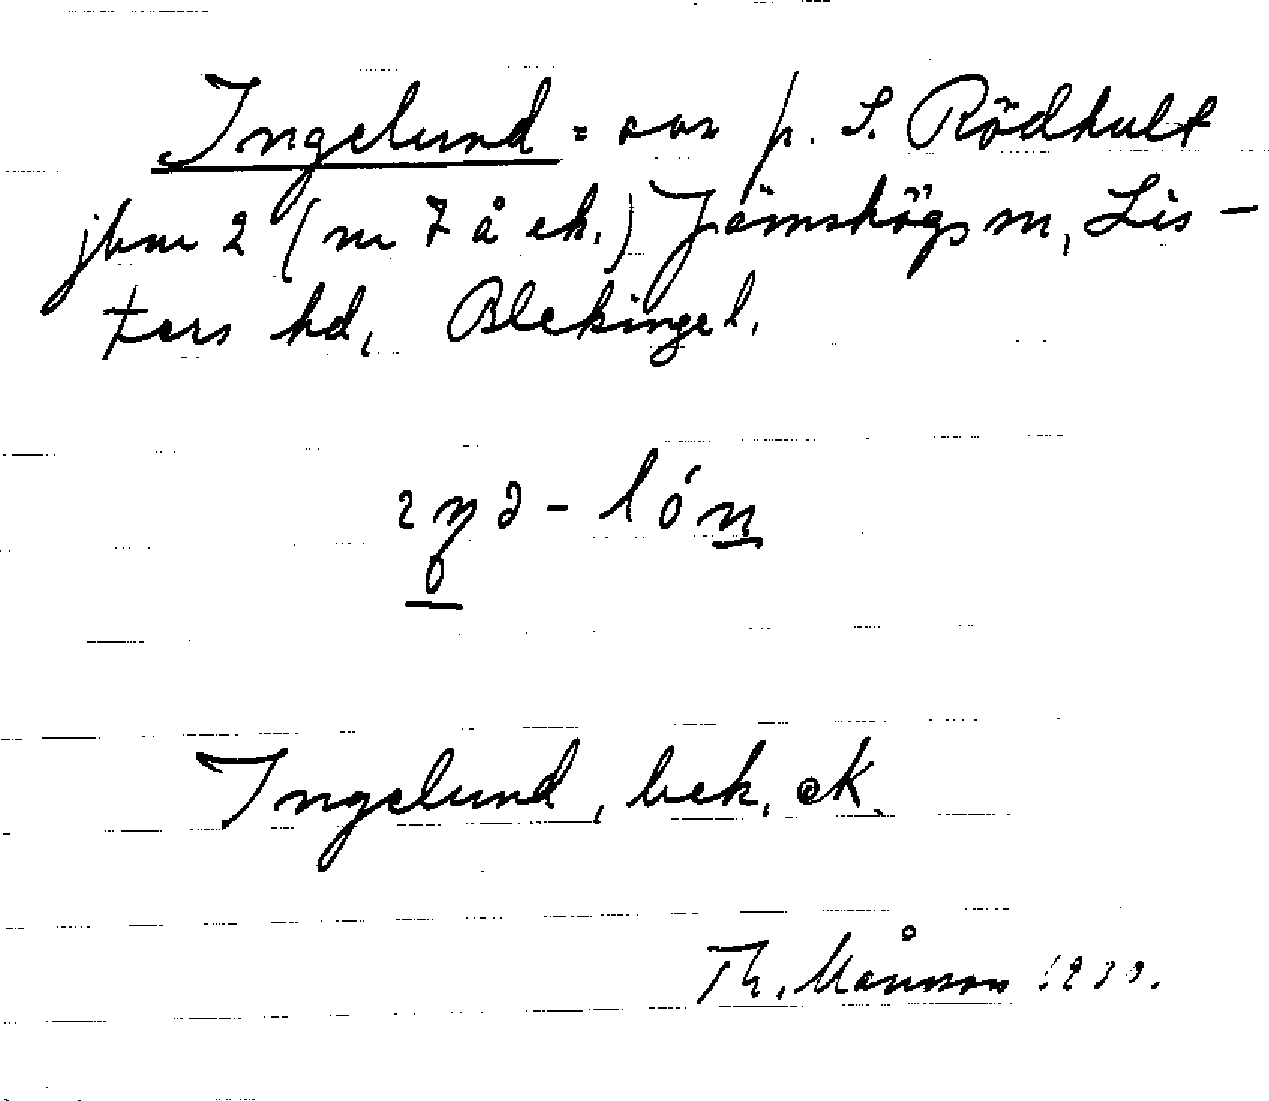 Ingelund = oon p. S. Rödhult
jbm 2 (m 7 å ek.) Jämshögs sn, Lis-
ters hd, Blekinge l.
Ingelund, bek. ek.
Th. Månsson